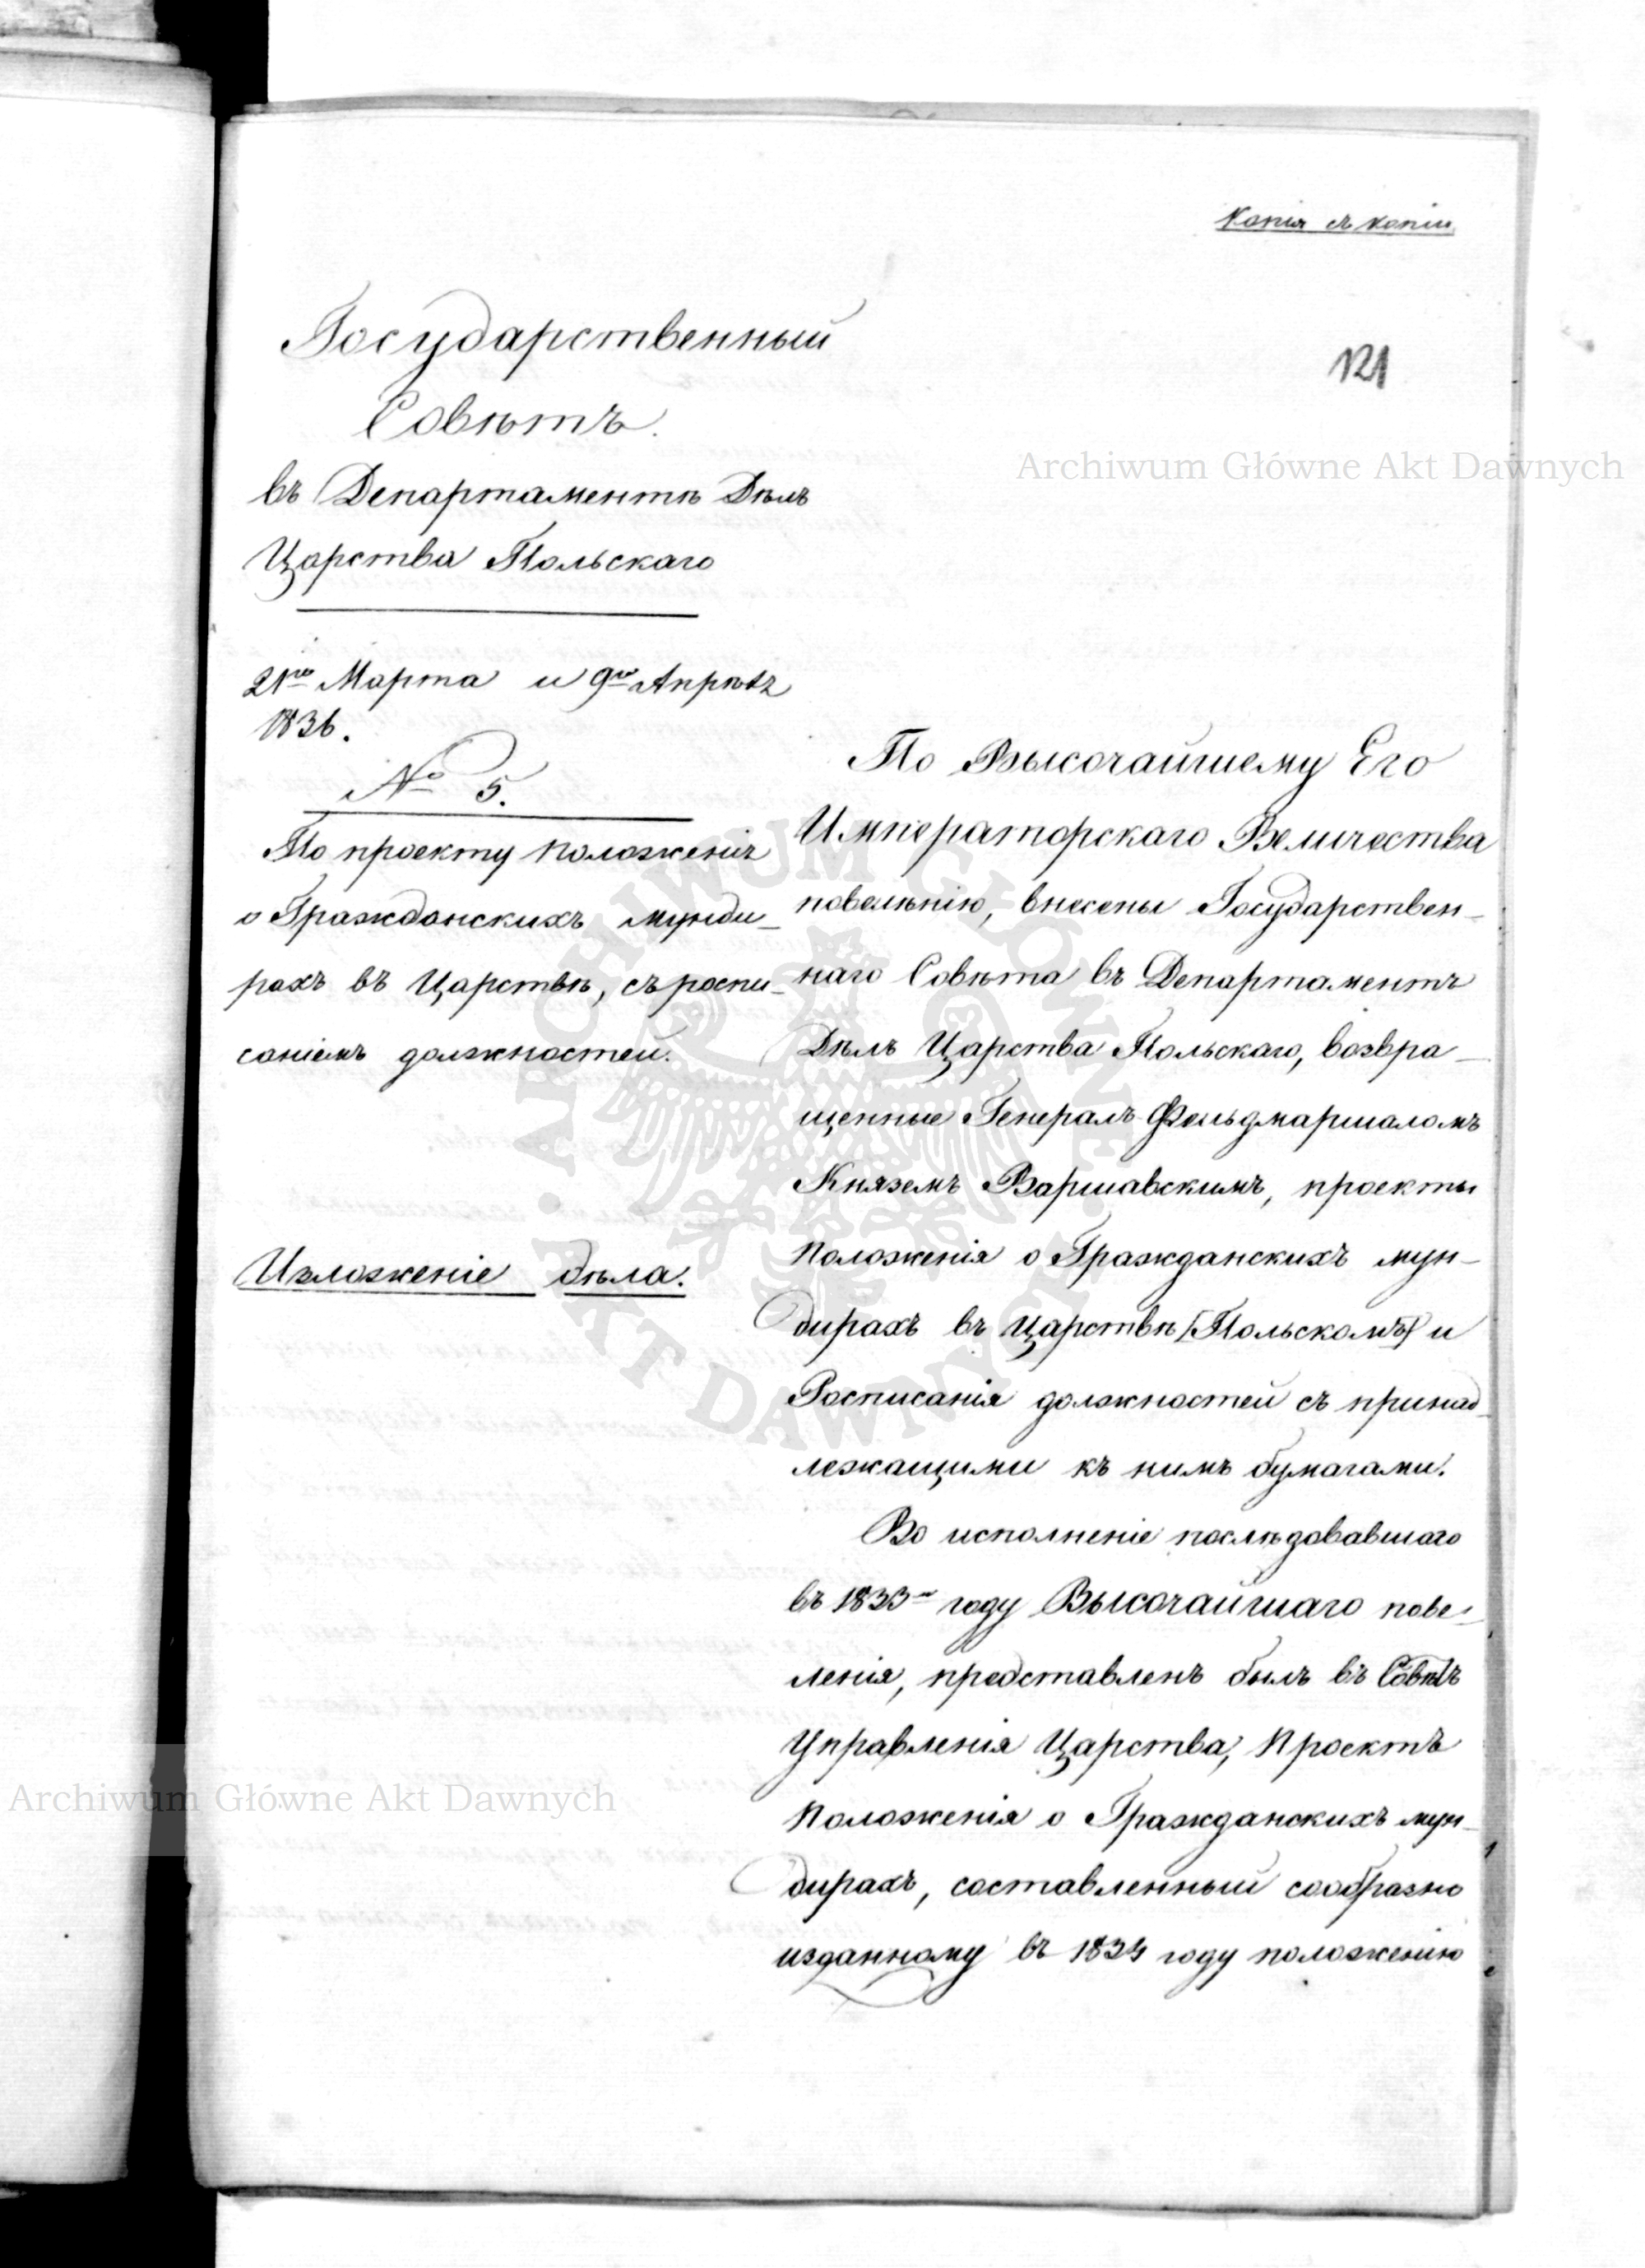 Копія съ копіи
121
Государственный
Совѣтъ.
въ Департаментѣ Дѣлъ
Царства Польскаго
21го Марта и 9го Апрѣля
1836.
№ 5.
По проекту Положенія
о Гражданскихъ мунди-
рахъ въ Царствѣ, съ роспи-
саніемъ должностей.
Изложеніе дѣла.
По Высочайшему Его
Императорскаго Величества
повелѣнію, внесены Государствен-
наго Совѣта въ Департаментъ
Дѣлъ Царства Польскаго, возвра-
щенные Генералъ-Фельдмаршаломъ
Княземъ Варшавскимъ, проекты
Положенія о Гражданскихъ мун-
дирахъ въ Царствѣ [Польскомъ] и
Росписанія должностей съ принад-
лежащими къ нимъ бумагами.
Во исполненіе послѣдовавшаго
въ 1833м году Высочайшаго пове-
ленія, представленъ былъ въ Совѣтъ
Управленія Царства, Проектъ
Положенія о Гражданскихъ мун-
дирахъ, составленный сообразно
изданному въ 1834 году положенію
Archiwum Główne Akt Dawnych
Archiwum Główne Akt Dawnych
ARCHIWUM GŁÓWNE AKT DAWNYCH